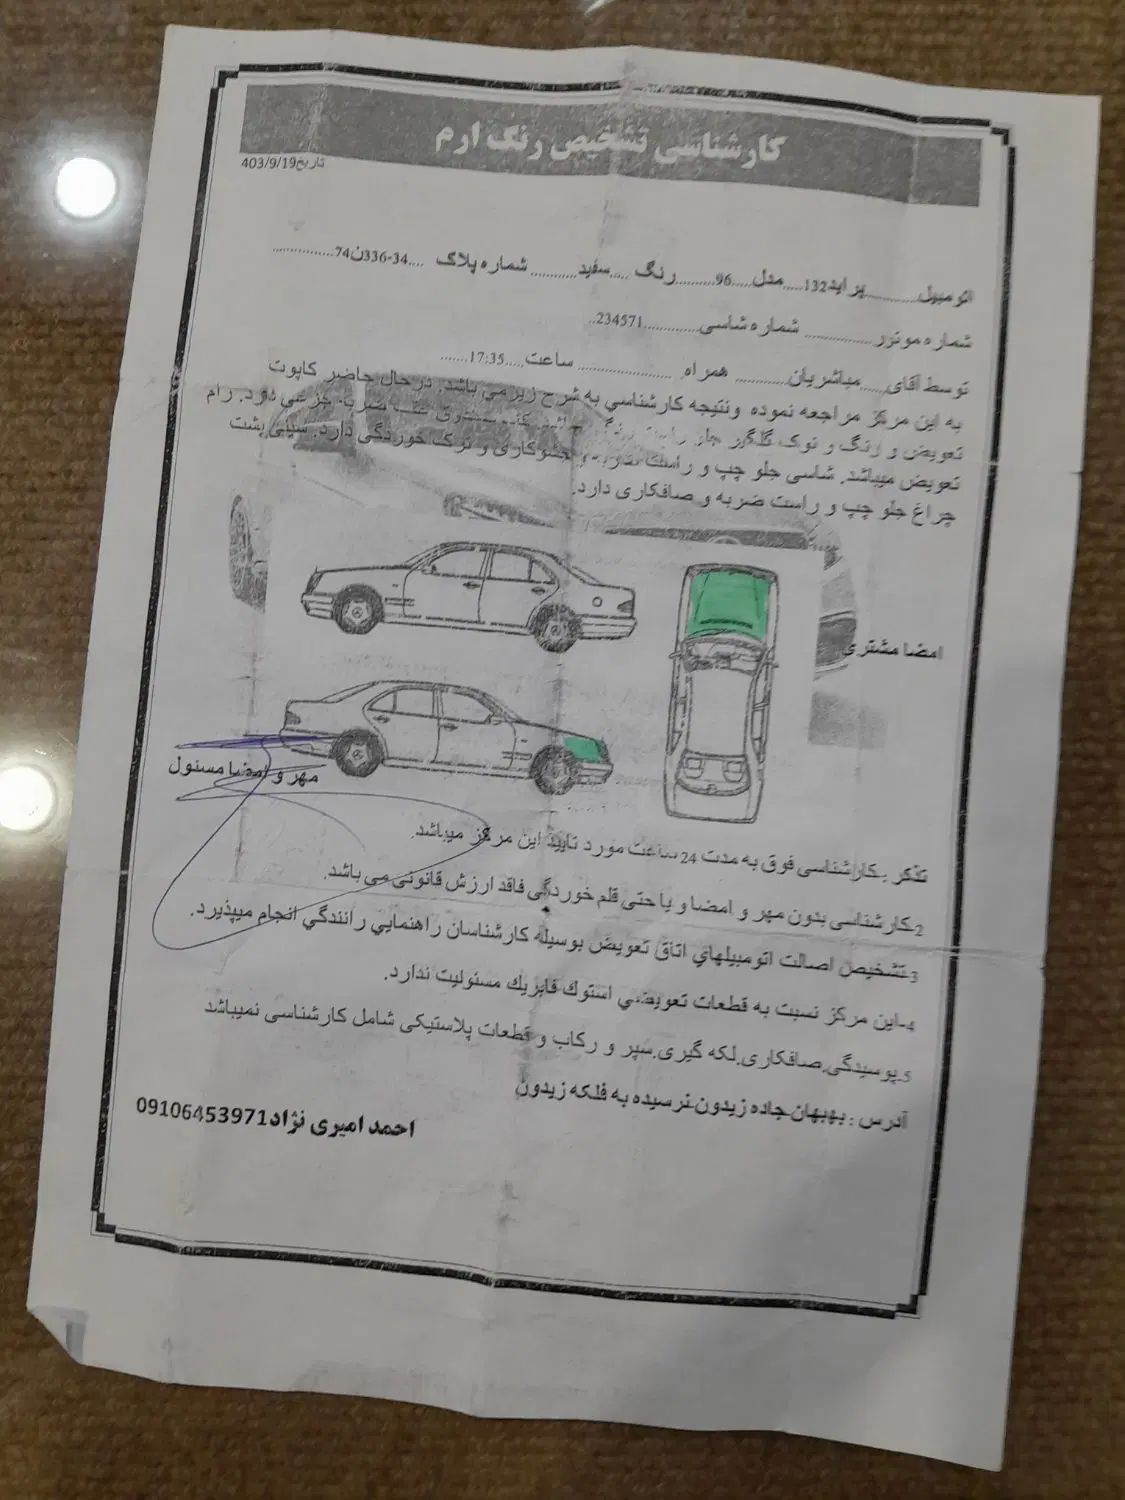 کارشناسی تشخیص رنگ ارم
تاریخ403/9/19
اتومبیل............پراید132.....مدل.....96.........رنگ ....سفید........... شماره پلاک ....34-336ن74...............
شماره موتور................. شماره شاسی.............234571..
توسط آقای.....مباشریان............. همراه ....................... ساعت....17:35.......
به این مرکز مراجعه نموده ونتیجه کارشناسي به شرح زیرمي باشد. درحال حاضر کاپوت
تعویض و رنگ و نوک گلگیر جلو راست رنگ باشد. کف صندوق عقب ضربه جزئی دارد. رام
تعویض میباشد. شاسی جلو چپ و راست و جوشکاری و ترک خوردگی دارد. سینی پشت
چراغ جلو چپ و راست ضربه و صافکاری دارد.
امضا مشتری
مهر و امضا مسئول
تذکر -کارشناسی فوق به مدت 24 ساعت مورد تایید این مرکز میباشد.
2-کارشناسی بدون مهر و امضا و یا حتی قلم خوردگی فاقد ارزش قانونی می باشد.
3-تشخیص اصالت اتومبیلهاي اتاق تعویض بوسیله کارشناسان راهنمايي رانندگي انجام میپذیرد.
4-این مرکز نسبت به قطعات تعویضي استوك فابریك مسئولیت ندارد.
5.پوسیدگی.صافکاری.لکه گیری.سپر و رکاب و قطعات پلاستیکی شامل کارشناسی نمیباشد
آدرس : بهبهان-جاده زیدون-نرسیده به فلکه زیدون
احمد امیری نژاد09106453971